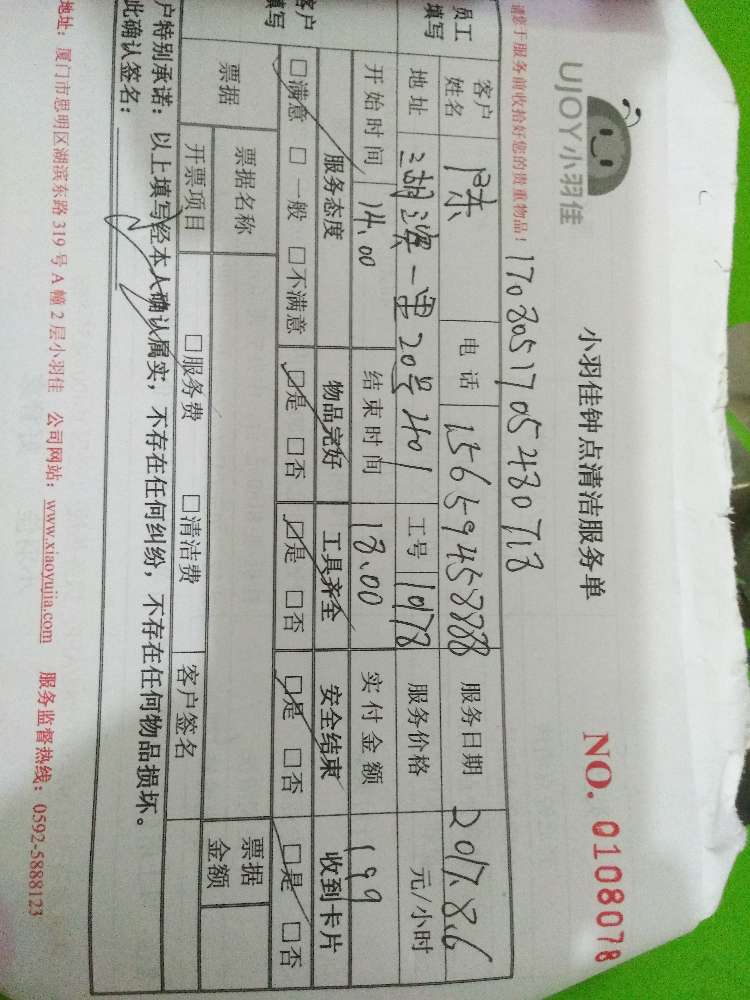 UJOY小羽佳
小羽佳钟点清洁服务单
NO. 0108078
请您于服务前收拾好您的贵重物品！
1708051705480718
员工填写
客户姓名 陈 电话 15659458888 服务日期 2017.8.6
地址 湖滨一里20号401 工号 10178 服务价格 元/小时
开始时间 14.00 结束时间 18.00 实付金额 199
客户填写
服务态度 物品完好 工具齐全 安全结束 收到卡片
□满意 □一般 □不满意 □是 □否 □是 □否 □是 □否 □是 □否
票据 票据名称 票据金额
开票项目 □服务费 □清洁费 客户签名
户特别承诺：以上填写经本人确认属实，不存在任何纠纷，不存在任何物品损坏。
此确认签名：
地址：厦门市思明区湖滨东路319号A幢2层小羽佳 公司网站：www.xiaoyujia.com 服务监督热线：0592-5888123